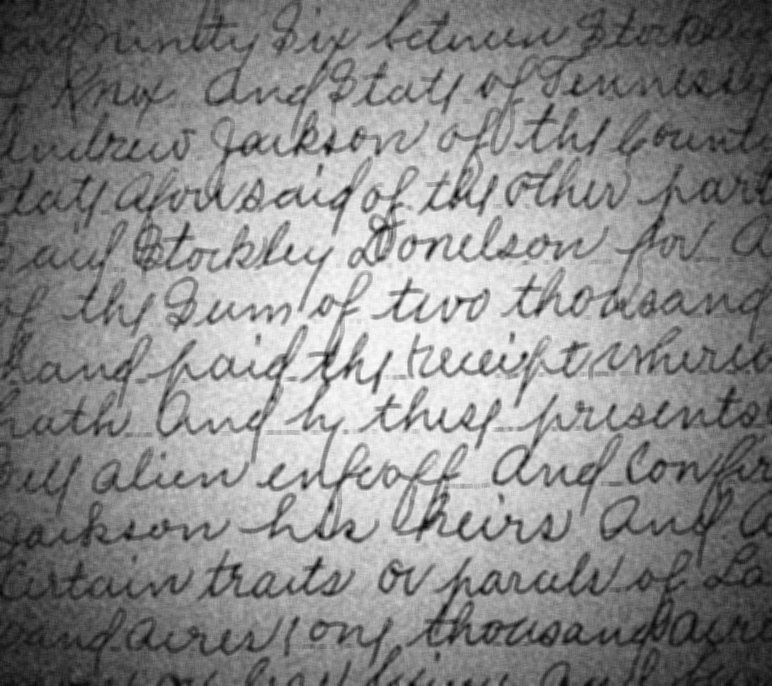 and ninetty Six between Stockley
of Knox And State of Tennessy
Andrew Jackson of the County
State Aforesaid of the other part
Said Stockley Donelson for A
of the Sum of two thousand
hand paid the receipt wherso
hath And by these presents
Sell alien enfeoff And Confir
Jackson his heirs And A
Certain tracts or parcels of La
sand acres one thousand acre